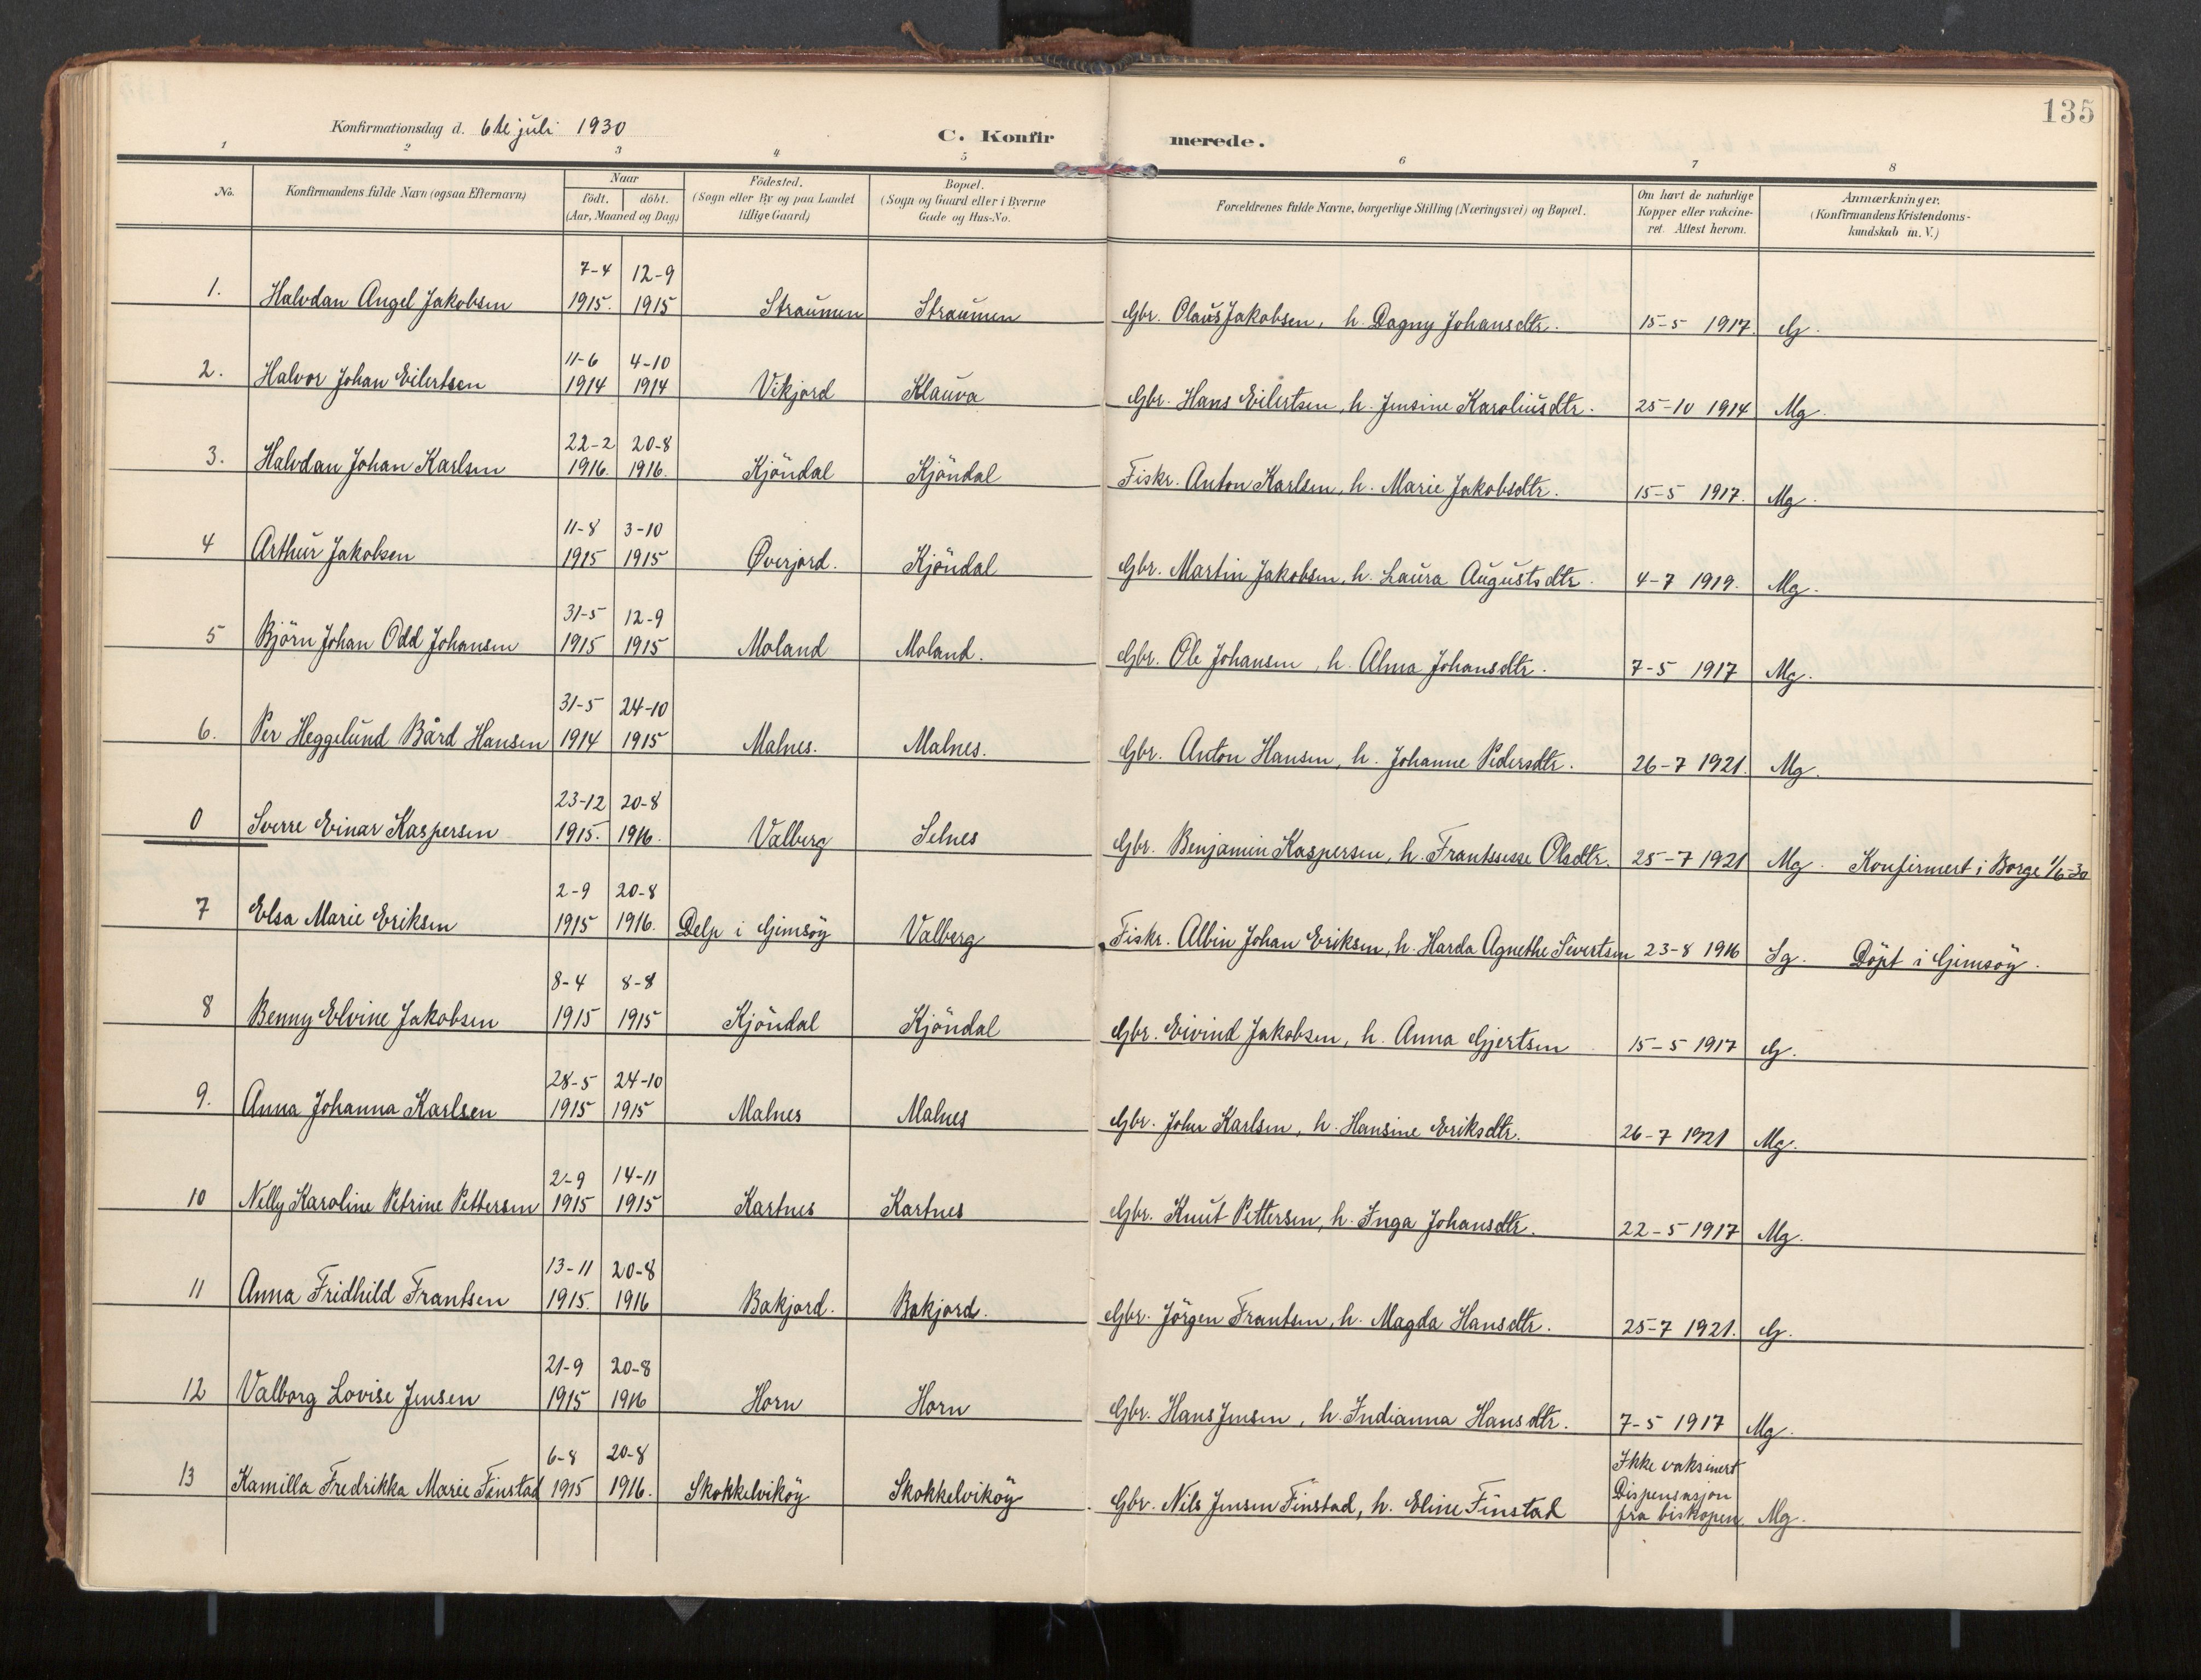 135
Konfirmationsdag d. 6te juli 1930
C. Konfirmerede.
1 2 3 4 5 6 7 8
No. | Konfirmandens fulde Navn (ogsaa Efternavn) | Naar födt. döbt. (Aar, Maaned og Dag) | Födested. (Sogn eller By og paa Landet tillige Gaard) | Bopæl. (Sogn og Gaard eller i Byerne Gade og Hus-No. | Forældrenes fulde Navne, borgerlige Stilling (Næringsvei) og Bopæl. | Om havt de naturlige Kopper eller vakcineret. Attest herom. | Anmærkninger. (Konfirmandens Kristendomskundskab m. V.)
1. Halvdan Angel Jakobsen 7-4 1915. 12-9 1915 Straumen Straumen Gbr. Olaus Jakobsen, h. Dagny Johansdtr. 15-5 1917. G.
2. Halvor Johan Eilertsen 11-6 1914 4-10 1914 Vikjord Klauva Gbr. Hans Eilertsen, h. Jensine Karoliusdtr. 25-10 1914 Mg.
3. Halvdan Johan Karlsen 22-2 1916. 20-8 1916. Kjöndal Kjöndal Fiskr. Anton Karlsen, h. Marie Jakobsdtr. 15-5 1917. Mg.
4 Arthur Jakobsen 11-8 1915 3-10 1915 Øverjord. Kjöndal Gbr. Martin Jakobsen, h. Laura Augustsdtr. 4-7 1919. Mg.
5 Björn Johan Odd Johansen 31-5 1915 12-9 1915 Moland Moland. Gbr. Ole Johansen, h. Alma Johansdtr. 7-5 1917 Mg.
6. Per Heggelund Bård Hansen 31-5 1914 24-10 1915 Malnes. Malnes. Gbr. Anton Hansen, h. Johanne Pedersdtr. 26-7 1921. Mg.
0 Sverre Einar Kaspersen 23-12 1915. 20-8 1916. Valberg Selnes Gbr. Benjamin Kaspersen, h. Frantsesse Olsdtr. 25-7 1921 Mg. Konfirmert i Borge 1/6-30
7 Elsa Marie Eriksen 2-9 1915 20-8 1916. Delp i Gimsöy Valberg Fiskr. Albin Johan Eriksen, h. Harda Agnethe Sivertsen 23-8 1916 Sg. Döpt i Gimsöy.
8 Benny Elvine Jakobsen 8-4 1915 8-8 1915 Kjöndal Kjöndal Gbr. Eivind Jakobsen, h. Anna Gjertsen 15-5 1917 G.
9. Anna Johanna Karlsen 28-5 1915 24-10 1915 Malnes Malnes Gbr. John Karlsen, h. Hansine Eriksdtr. 26-7 1921 Mg.
10 Nelly Karoline Petrine Pettersen 2-9 1915 14-11 1915 Kartnes Kartnes Gbr. Knut Pettersen, h. Inga Johansdtr. 22-5 1917 Mg.
11 Anna Fridhild Frantsen 13-11 1915. 20-8 1916 Bakjord. Bakjord. Gbr. Jörgen Frantsen, h. Magda Hansdtr. 25-7 1921. G.
12 Valborg Lovise Jensen 21-9 1915 20-8 1916 Horn Horn Gbr. Hans Jensen, h. Indianna Hansdtr. 7-5 1917 Mg.
13 Kamilla Fredrikka Marie Finstad 6-8 1915 20-8 1916. Skokkelviköy Skokkelviköy Gbr. Nils Jensen Finstad, h. Eline Finstad Ikke vaksinert Dispensasjon fra biskopen. Mg.